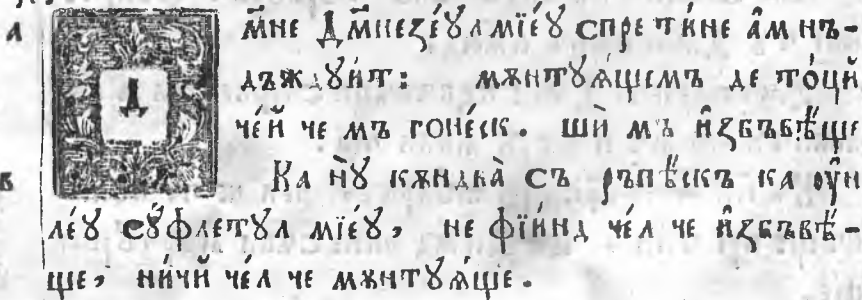 а Дм҃не Дм҃неꙁе́ꙋл мїе́ꙋ спре ти́не а҆м нъ-
дъждꙋи́т: мѫнтꙋѧ́щемъ де то́ци
че́й че мъ гоне́ск. шѝ мъ и҆ꙁбъвѣ́ще
в Ка нꙋ̀ кѫндва̀ съ ръпѣ́скъ ка ᲂу҆н
ле́ꙋ сꙋ́флетꙋл мїе́ꙋ, не фїи́нд че́л че и҆ꙁбъвѣ́-
ще, ни́чй че́л че мѫнтꙋѧ́ще.